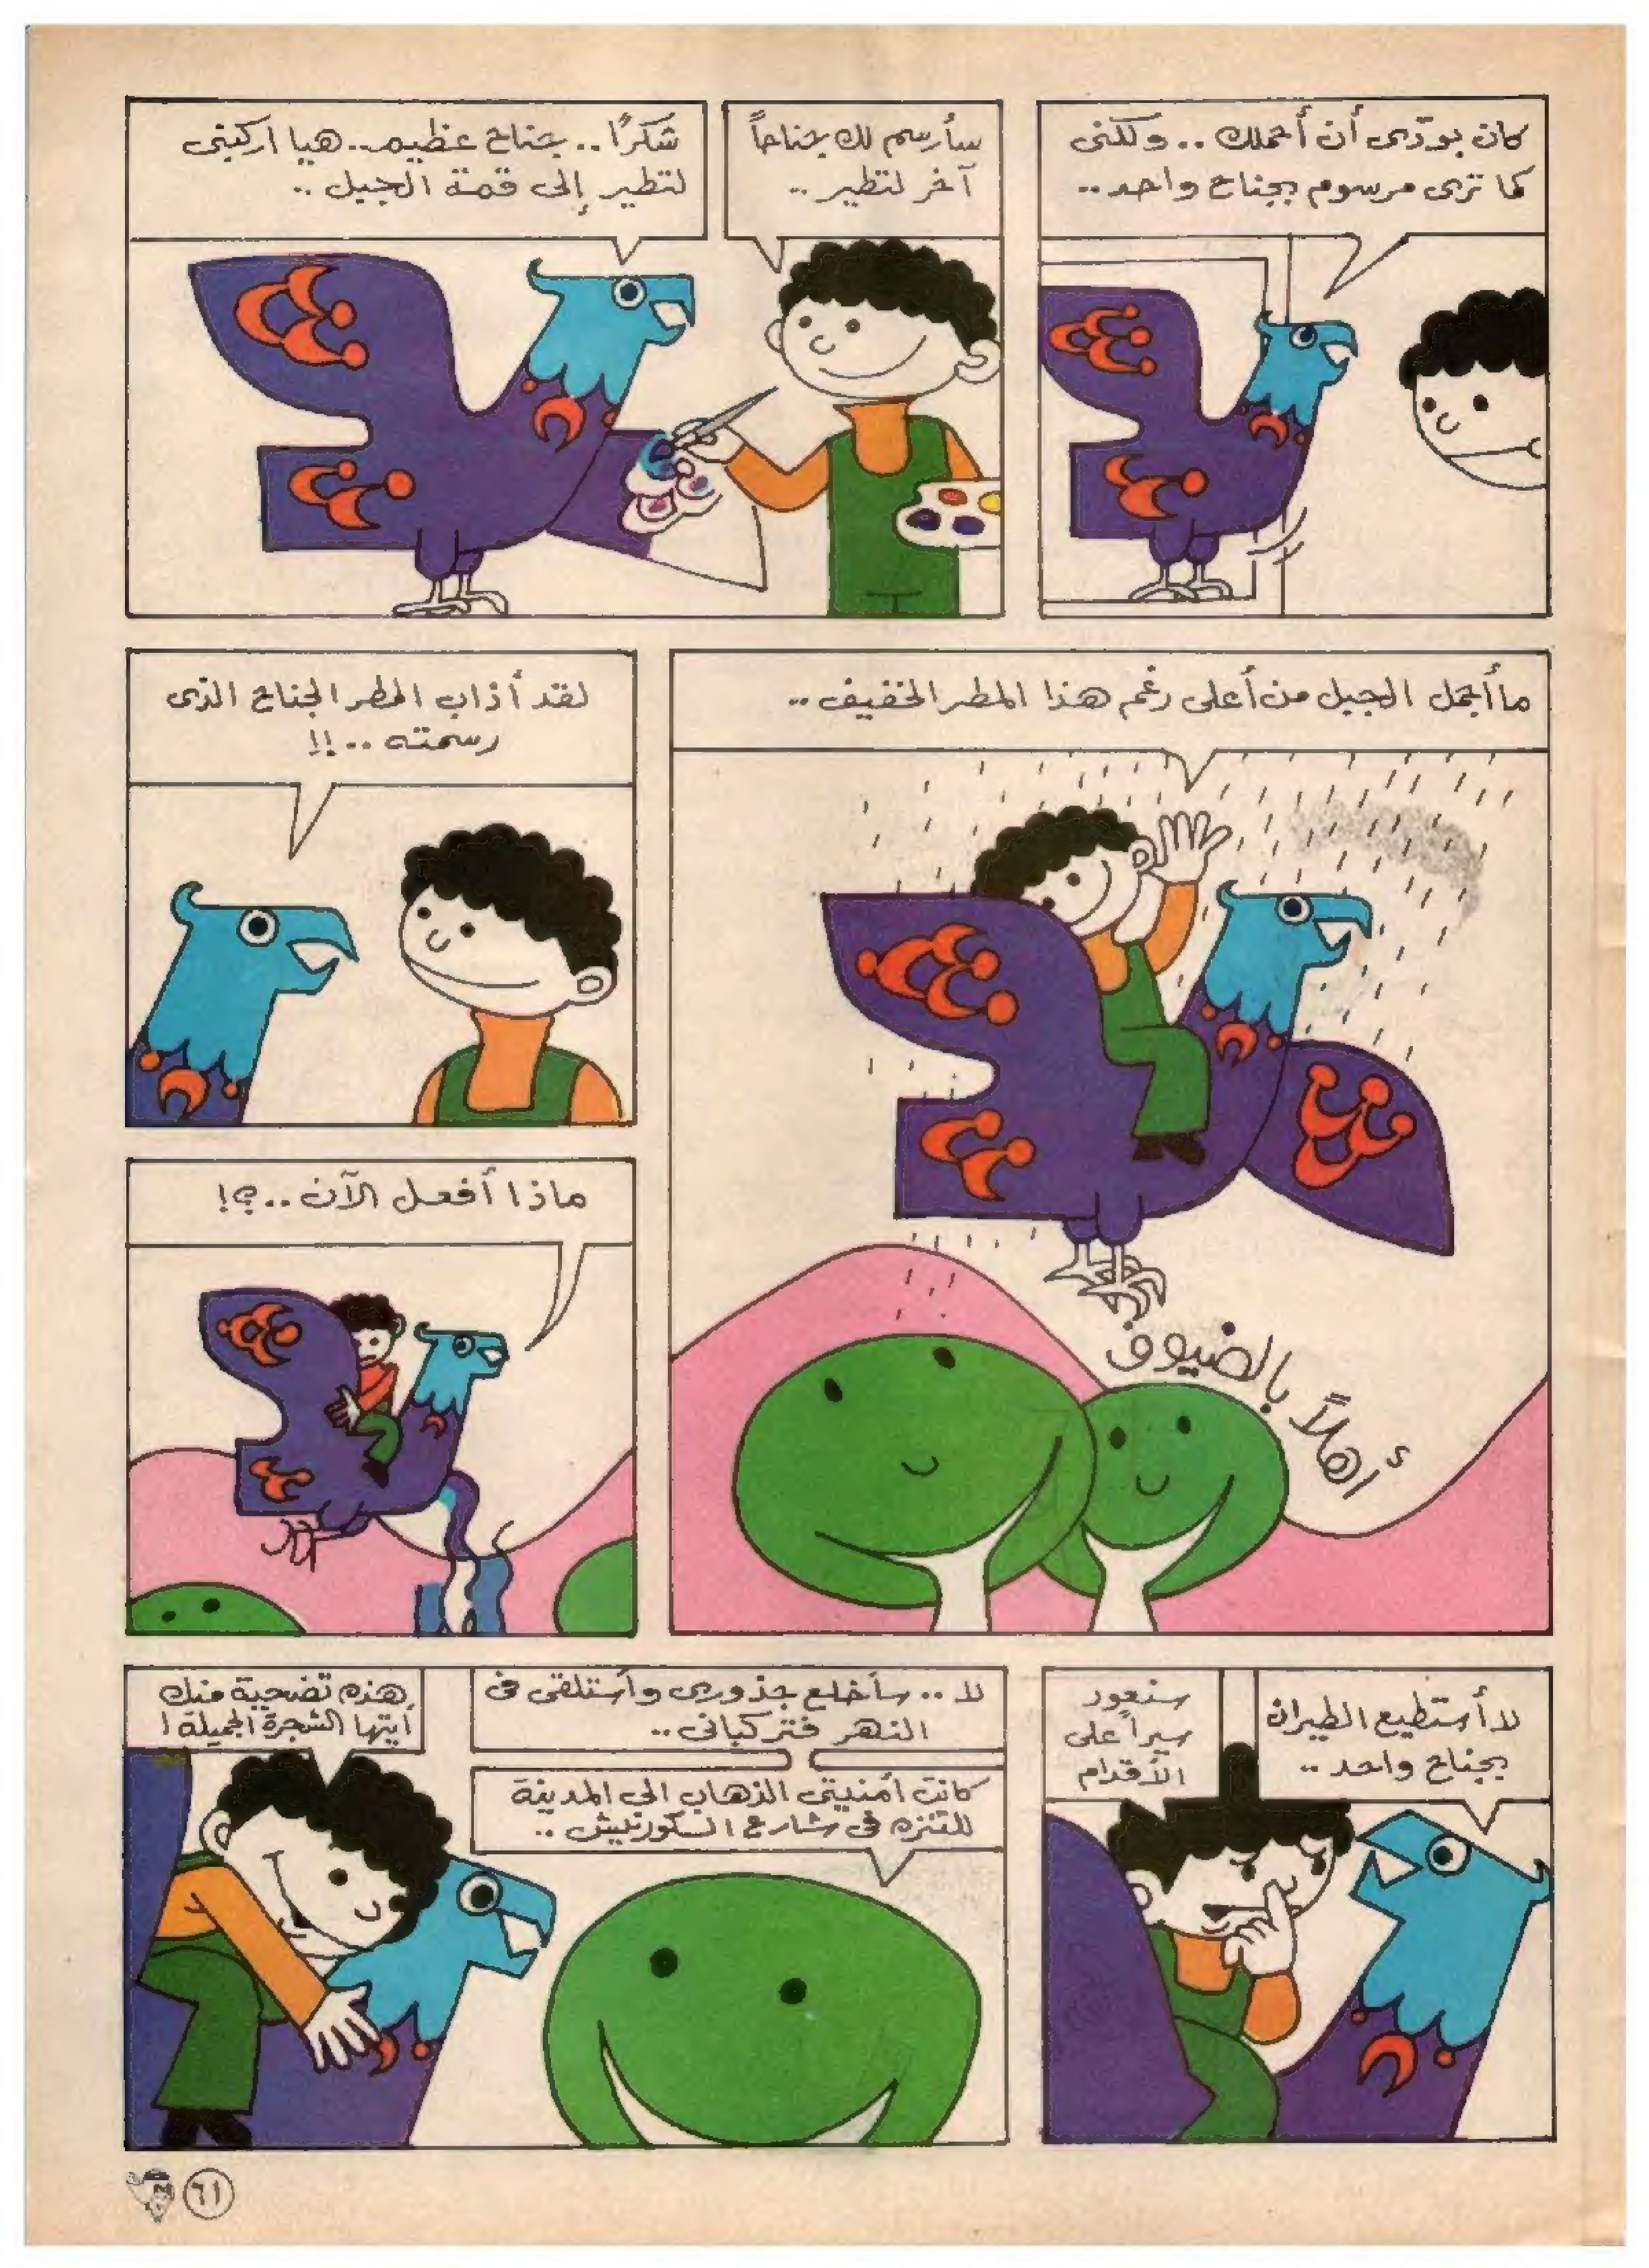 كان بودّى أن أحملك .. ولكنى
كما ترى مرسوم بجناح واحد ..
سأرسم لك جناحاً
آخر لتطير ..
شكرًا .. جناح عظيم .. هيا اركبنى
لتطير إلى قمة الجبل ..
ما أجمل الجبل من أعلى رغم هذا المطر الخفيف ..
أهلاً بالضيوف
لقد أذاب المطر الجناح الذى
رسمته ..!!
ماذا أفعل الآن ..؟!
لا أستطيع الطيران
بجناح واحد ..
سنعود
سيراً على
الأقدام
لا .. سأخلع جذورى وأستلقى فى
النهر فتركبانى ..
كانت أمنيتى الذهاب الى المدينة
للتنزه فى شارع الكورنيش ..
هذه تضحية منك
أيتها الشجرة الجميلة !
٦١